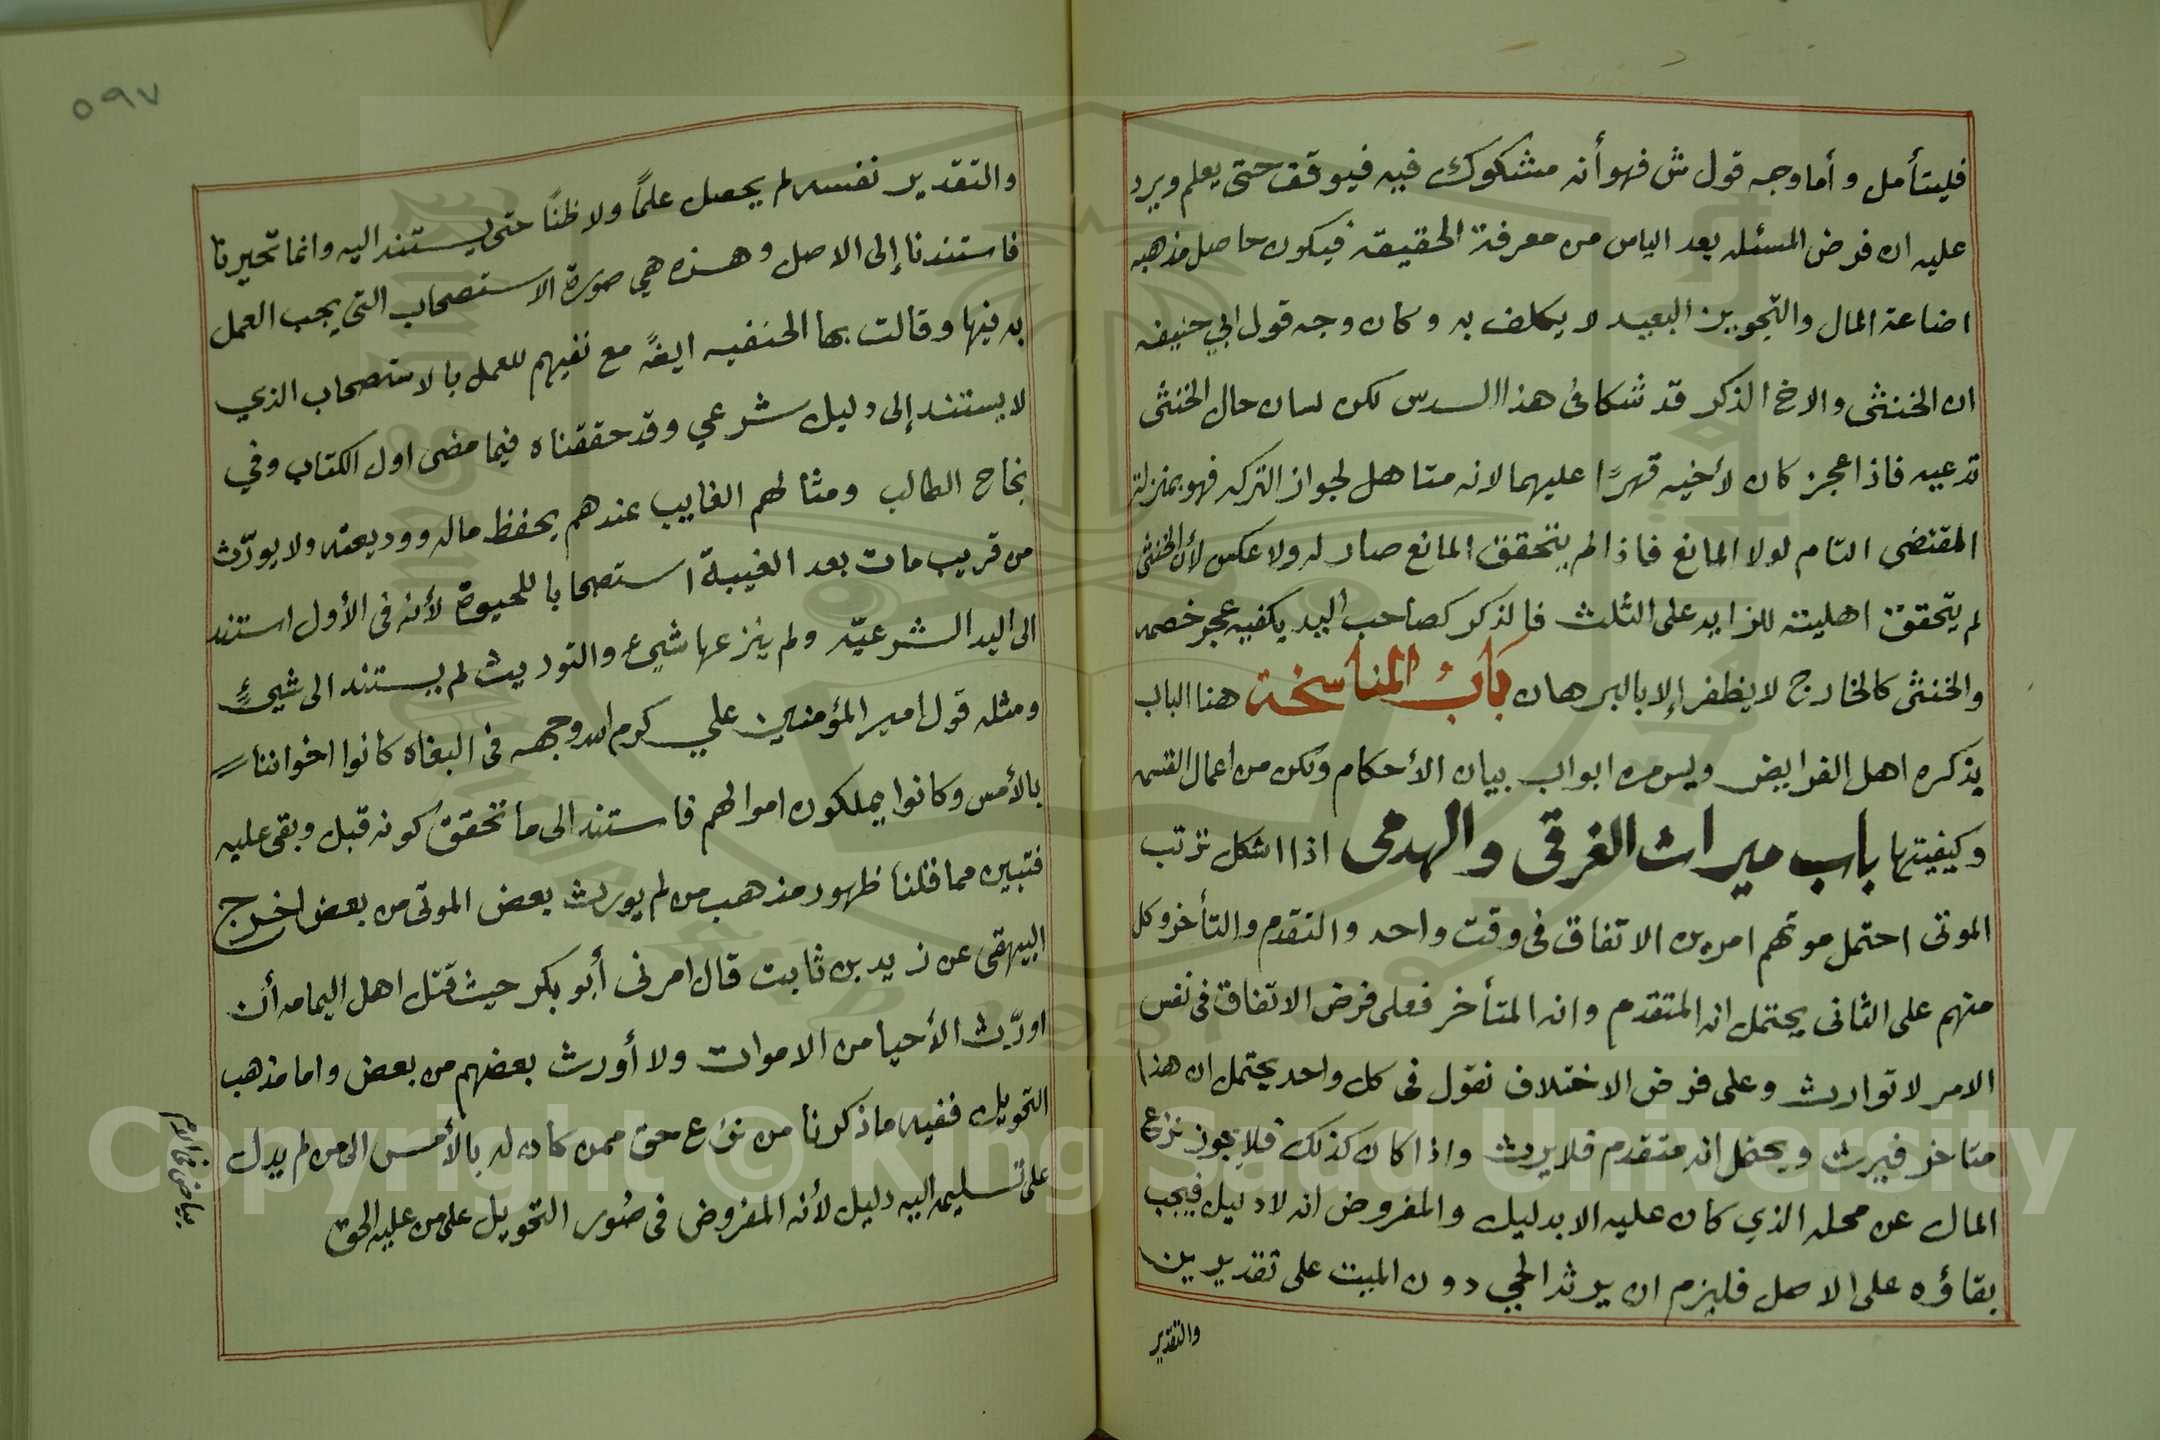 فليتأمل وأما وجه قول ش فهو أنه مشكوك فيه فيوقف حتى يعلم ويرد
عليه ان فرض المسئله بعد الياس من معرفة الحقيقه فيكون حاصل مذهبه
اضاعة المال والتجويز البعيد لا يكلف به وكان وجه قول ابي حنيفه
ان الخنثى والاخ الذكر قد شكا في هذا السدس لكن لسان حال الخنثى
تدعيه فاذا عجز كان لأخيه قهرًا عليهما لانه متاهل لجواز التركه فهو بمنزلة
المقتضى التام لولا المانع فاذا لم يتحقق المانع صار له ولا عكس لأن الخنثى
لم يتحقق اهليته للزايد على الثلث فالذكر كصاحب اليد يكفيه عجز خصمه
والخنثى كالخارج لا يظفر إلا بالبرهان بَابُ المناسخة هنا الباب
يذكره اهل الفرايض وليس من ابواب بيان الأحكام ولكن من اعمال القسمه
وكيفيتها باب ميراث الغرقى والهدمى اذا اشكل ترتب
الموتى احتمل موتهم امرين الاتفاق في وقت واحد والتقدم والتأخر وكل
منهم على الثاني يحتمل انه المتقدم وانه المتأخر فعلى فرض الاتفاق في نفس
الامر لا توارث وعلى فرض الاختلاف نقول في كل واحد يحتمل ان هذا
متاخر فيرث ويحتمل انه متقدم فلا يرث واذا كان كذلك فلا يجوز نزع
المال عن محله الذي كان عليه الا بدليل والمفروض انه لا دليل فيجب
بقاؤه على الاصل فليزم ان يرثه الحي دون الميت على تقديرين
والتقدير
٥٩٧
والتقدير نفسه لم يحصل علمًا ولا ظنًا حتى يستند اليه وانما تحيرنا
فاستندنا إلى الاصل وهذه هي صورة الاستصحاب التي يجب العمل
به فيها وقالت بها الحنفيه ايضً مع نفيهم للعمل بالاستصحاب الذي
لا يستند إلى دليل شرعي وقد حققناه فيما مضى اول الكتاب وفي
نجاح الطالب ومثالهم الغايب عندهم يحفظ ماله ووديعته ولا يورّث
من قريب مات بعد الغيبة استصحابا للحيوة لأنه في الأول استند
الى اليد الشرعيّه ولم ينزعها شيء والتوريث لم يستند الى شيءٍ
ومثله قول امير المؤمنين علي كرم الله وجهه في البغاه كانوا اخواننا
بالأمس وكانوا يملكون اموالهم فاستند الى ما تحقق كونه قبل وبقى عليه
فتبين مما قلنا ظهور مذهب من لم يورث بعض الموتى من بعض اخرج
البيهقى عن زيد بن ثابت قال امرنى أبو بكر حيث قتل اهل اليمامه أن
اورّث الأحيا من الاموات ولا أورث بعضهم من بعض واما مذهب
التحويل ففيه ما ذكرنا من نزع حق ممن كان له بالأمس الى من لم يدل
على تسليمه اليه دليل لأنه المفروض في صُور التحويل على من عليه الحق
بياض في الام
Copyright © King Saud University